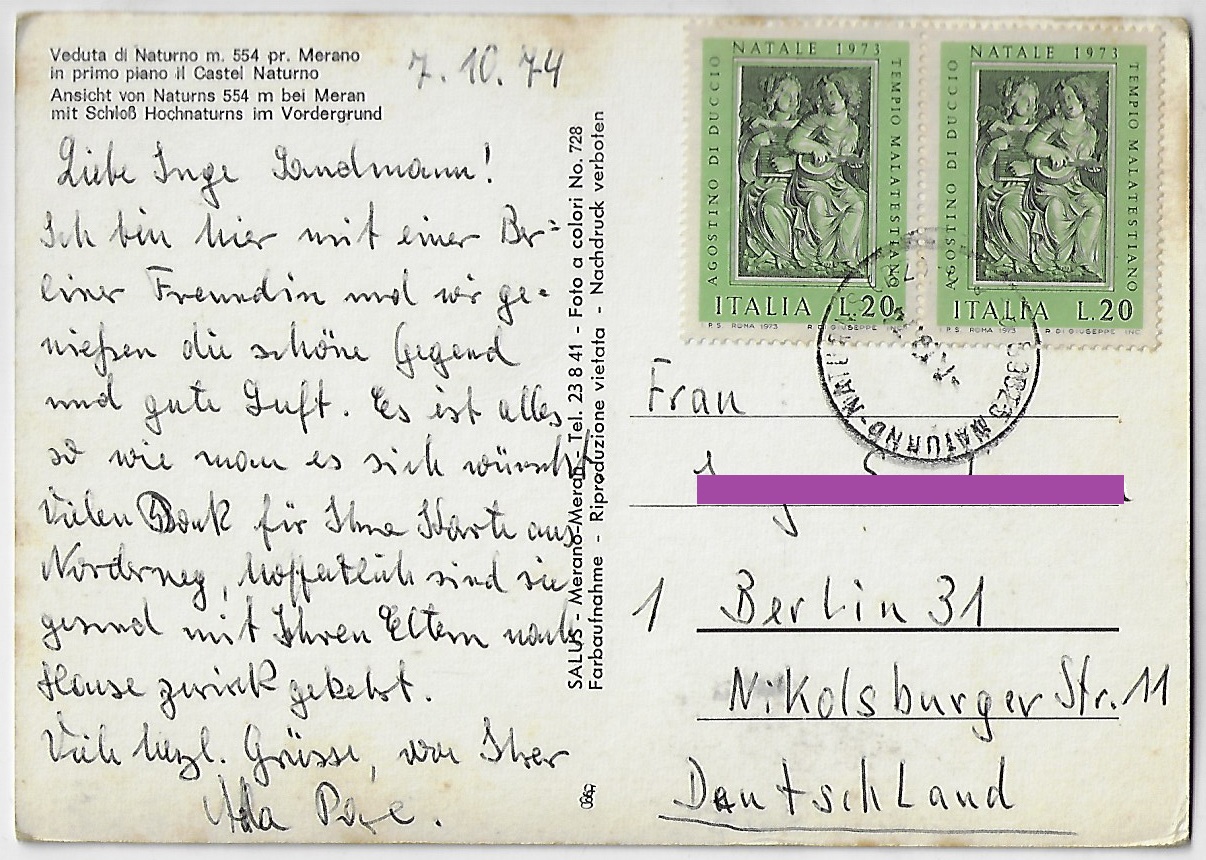 Veduta di Naturno m. 554 pr. Merano
in primo piano il Castel Naturno
Ansicht von Naturns 554 m bei Meran
mit Schloß Hochnaturns im Vordergrund
7.10.74
Liebe Inge Sandmann!
Ich bin hier mit einer Ber=
liner Freundin und wir ge=
nießen die schöne Gegend
und gute Luft. Es ist alles
so wie man es sich wünscht
Vielen Dank für Ihre Karte aus
Norderney, hoffentlich sind sie
gesund mit Ihren Eltern nach
Hause zurück gekehrt.
Viele herzl. Grüsse, von Ihrer
Ada
SALUS - Merano-Meran Tel. 23 8 41 - Foto a colori No. 728
Farbaufnahme - Riproduzione vietata - Nachdruck verboten
NATALE 1973
AGOSTINO DI DUCCIO
TEMPIO MALATESTIANO
ITALIA L.20
I.P.S. ROMA 1973 R. DI GIUSEPPE
NATALE 1973
AGOSTINO DI DUCCIO
TEMPIO MALATESTIANO
ITALIA L.20
I.P.S. ROMA 1973 R. DI GIUSEPPE INC
NATURNO-NATURNS
Frau
1 Berlin 31
Nikolsburger Str. 11
Deutschland